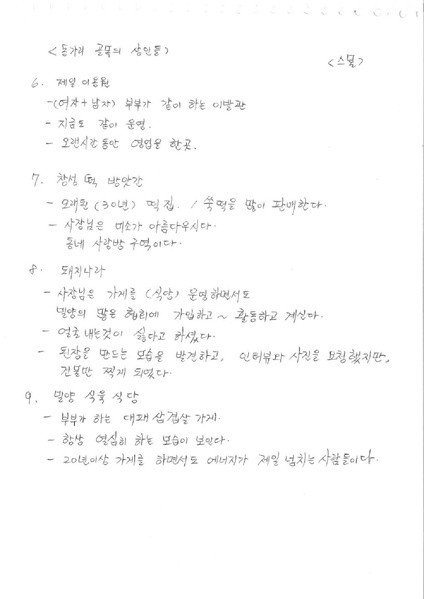 <동가리 골목의 상인들>
<스물>
6. 제일 이용원
- (여자+남자) 부부가 같이 하는 이발관
- 지금도 같이 운영.
- 오랜시간동안 영업을 한곳.
7. 창성 떡 방앗간
- 오래된 (30년) 떡집. / 쑥떡을 많이 판매한다.
- 사장님은 미소가 아름다우시다.
동네 사랑방 구역이다.
8. 돼지나라
- 사장님은 가게를 (식당) 운영하면서도
밀양의 많은 협회에 가입하고~ 활동하고 계신다.
- 얼굴 내는것이 싫다고 하셨다.
- 된장을 만드는 모습을 발견하고, 인터뷰와 사진을 요청했지만,
건물만 찍게 되었다.
9. 밀양 식육 식당
- 부부가 하는 대패 삼겹살 가게.
- 항상 열심히 하는 모습이 보인다.
- 20년이상 가게를 하면서도 에너지가 제일 넘치는 사람들이다.